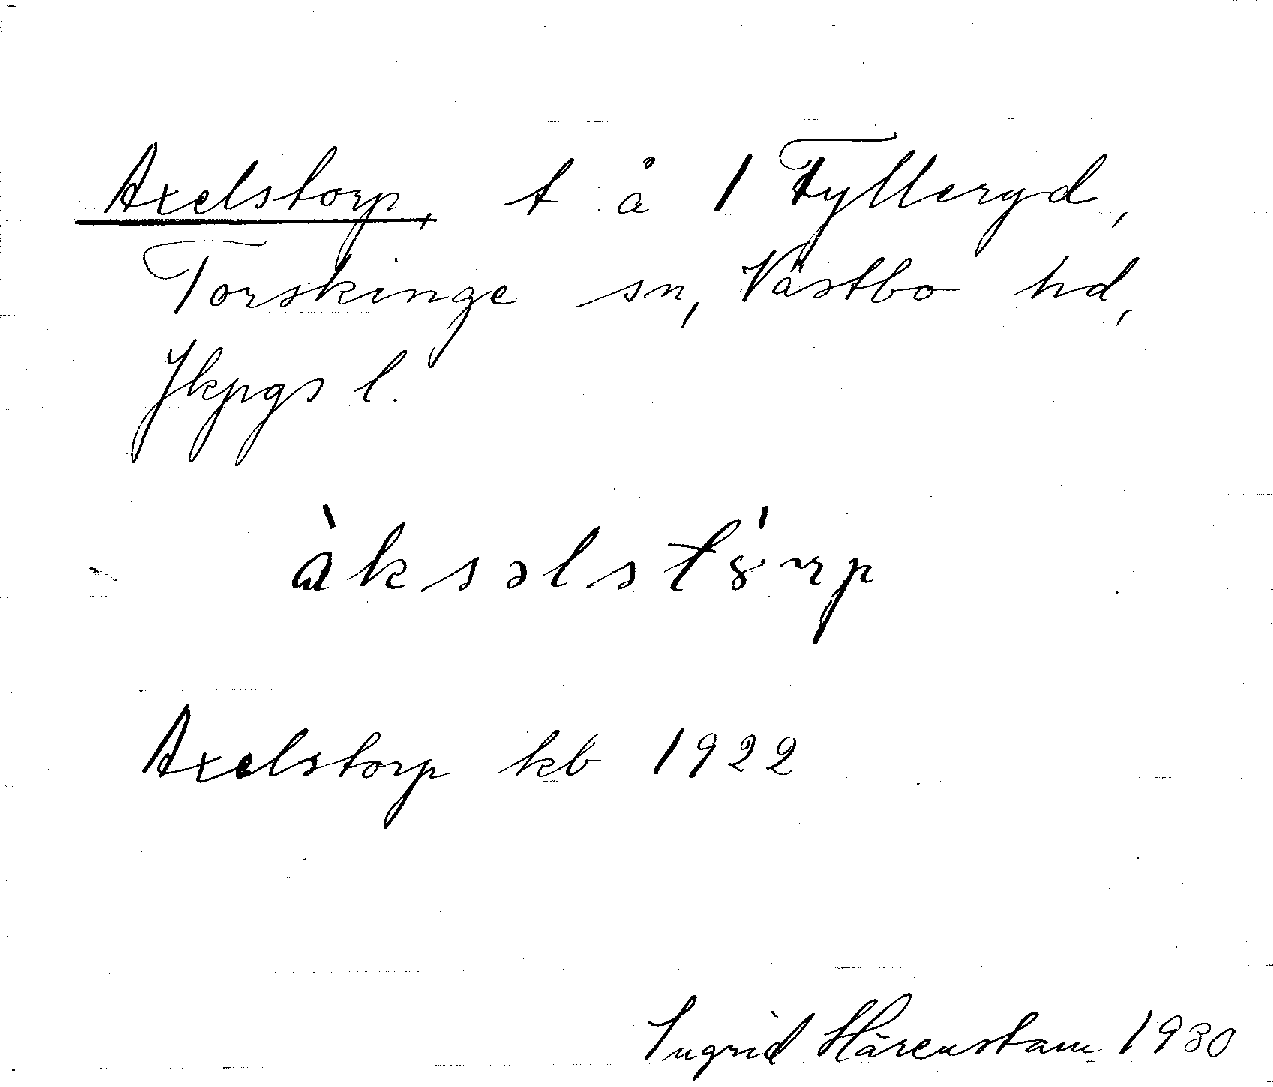 Axelstorp, t å 1 Fylleryd,
Torskinge sn, Västbo hd,
Jkpgs l.
àksəlstȣ́rp
Axelstorp kb 1922
Ingrid Härenstam 1930